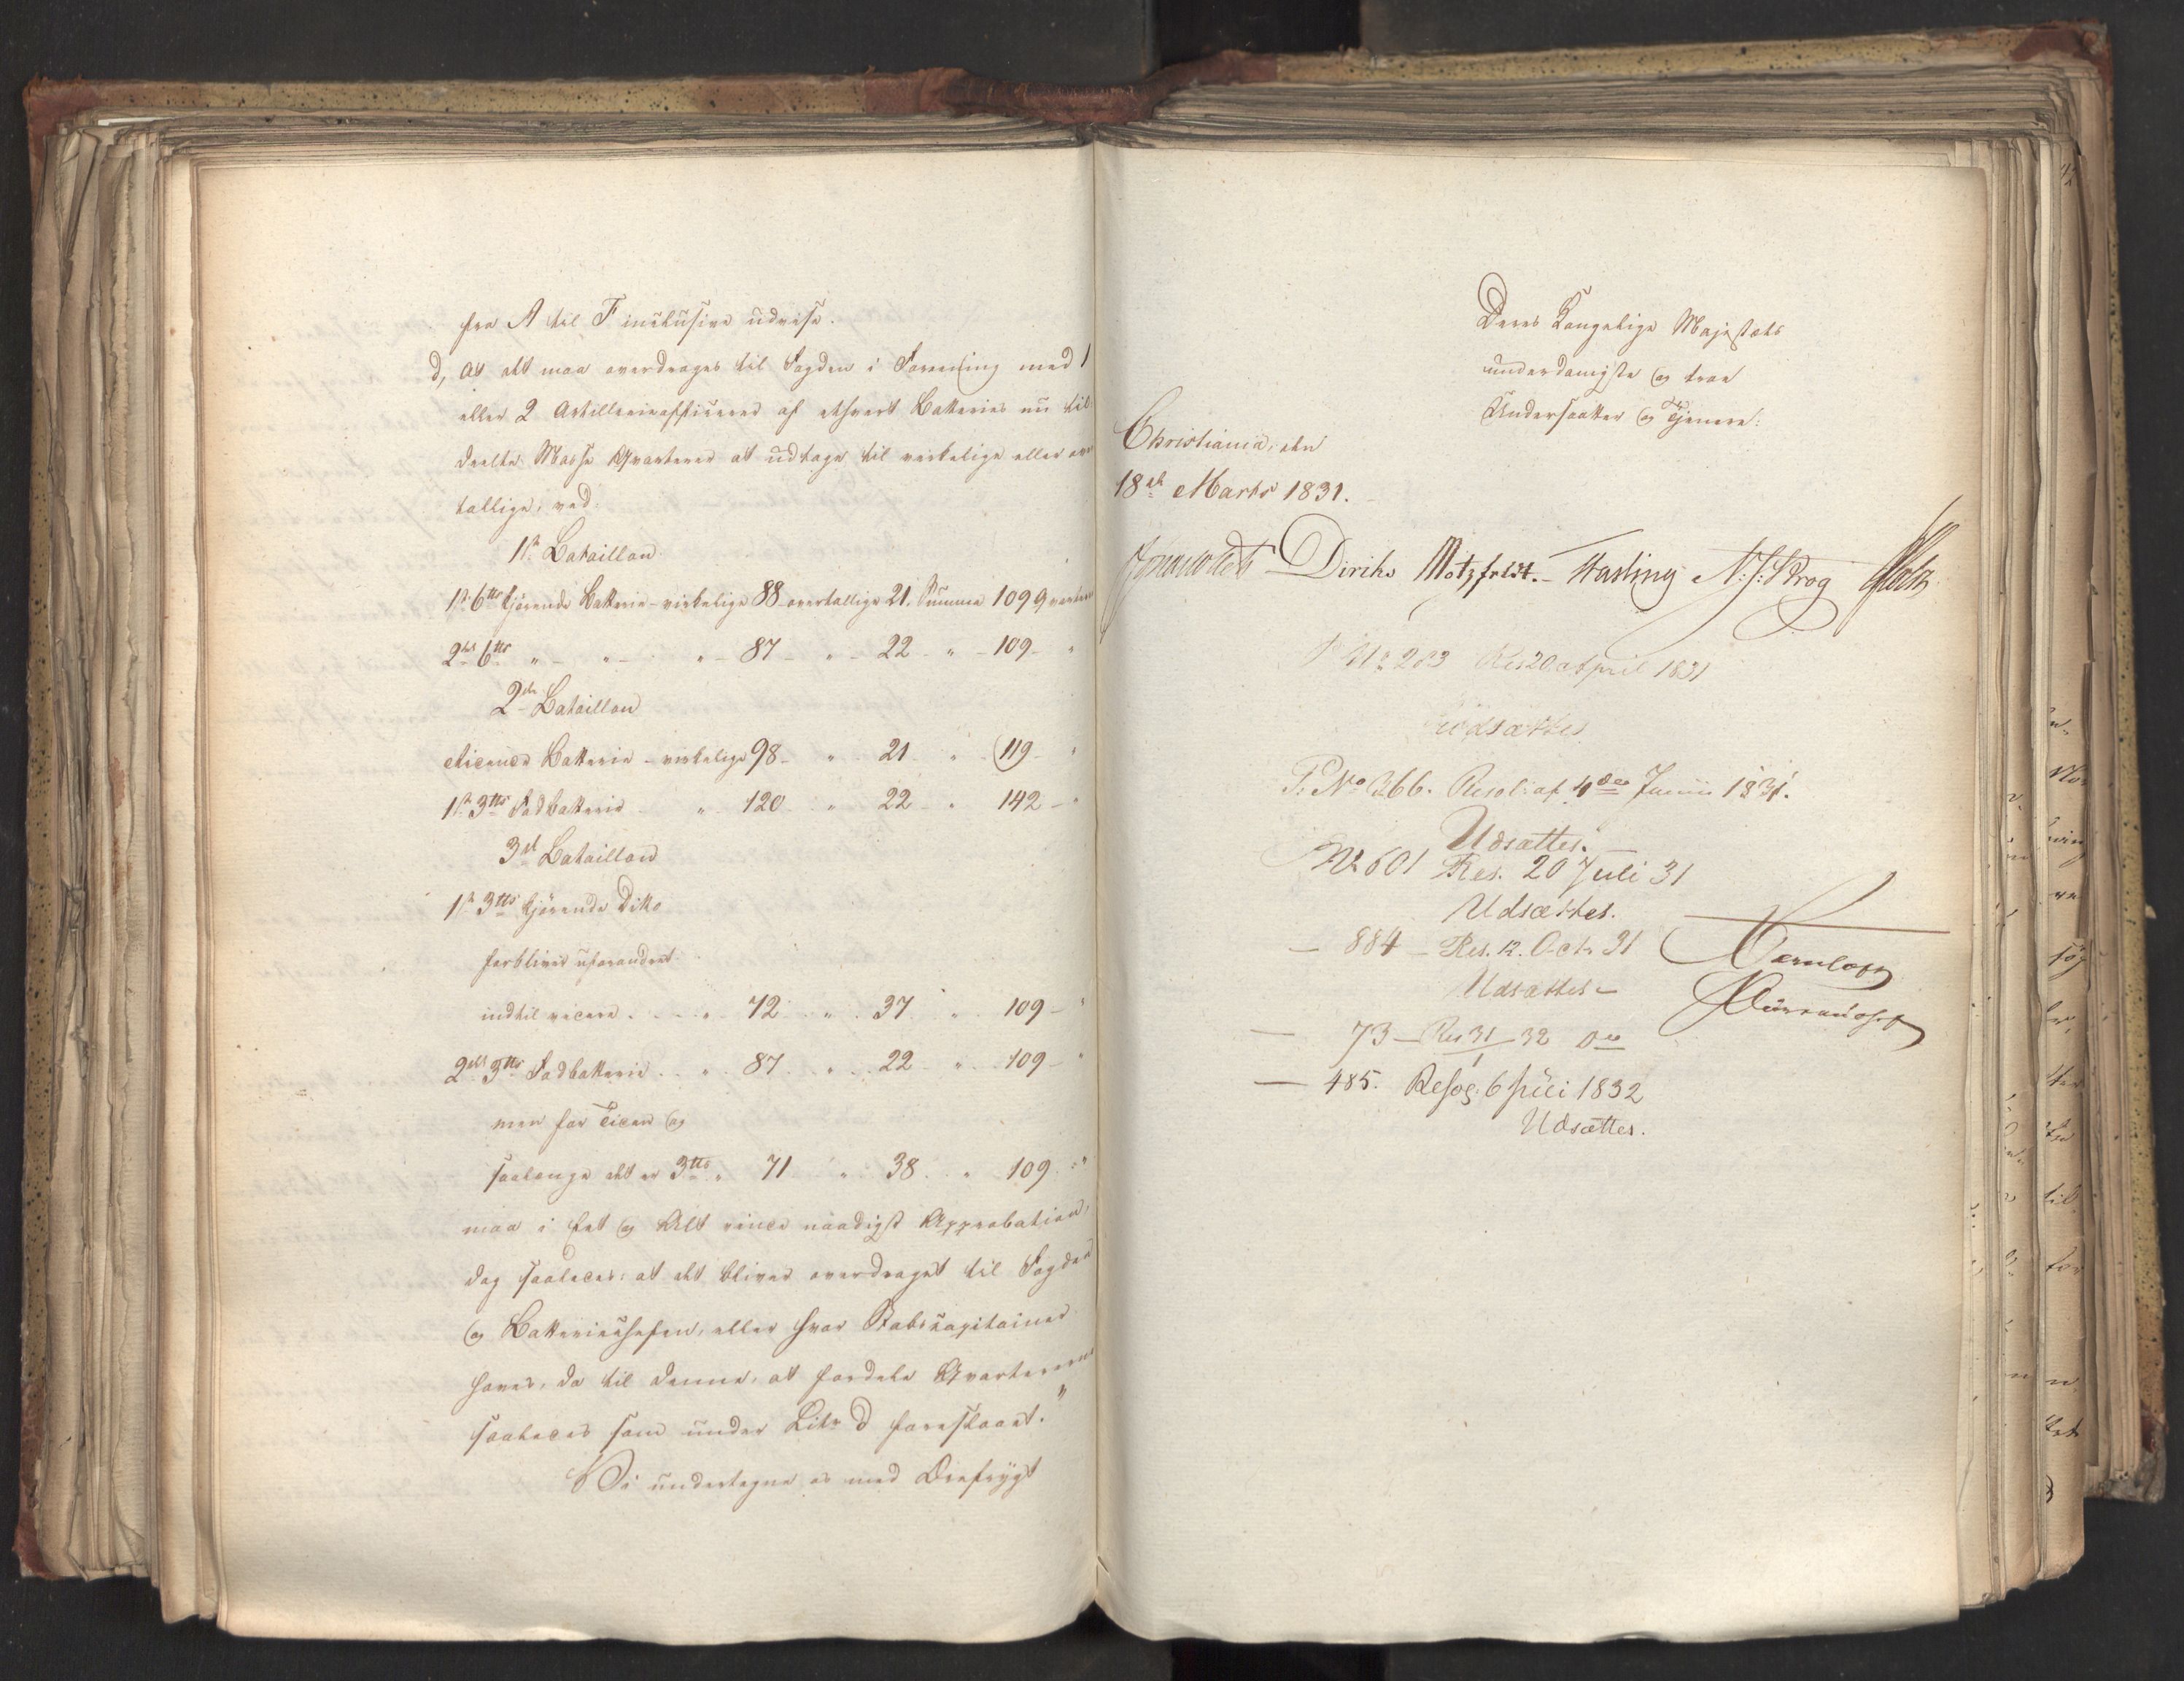 fra A til F inclusive udvise.
d, at det maa overdrages til Fogden i Forening med 1
eller 2 Artillerieofficerer af ethvert Batteries nu til-
deelte Masse Qvarterer at udtage til virkelige eller over
tallige, ved:
1ste Bataillon
1ste 6 ℔s kjørende Batterie - virkelige 88 - overtallige 21. Summa 109 Qvarterer
2det 6 ℔s " - " - " - 87 - " - 22 - " - 109 - "
2den Bataillon
Batterie - virkelige 98 - " - 21 " - 119 - "
1ste 3 ℔s Fodbatterie - " - 120 - " 22 - " 142 - "
3die Bataillon
1ste 3 ℔s kjørende Ditto
forbliver uforandret
indtil videre . . . . " . . 72 . . " . 37 " . 109 - "
2det 3 ℔s Fodbatterie . . " . 87 . . " . . 22 - " . 109 - "
men for Tiden og
saalænge det er 3 ℔s " 71 " 38 . " 109 . "
maa i Eet og Alt vinde naadigst Approbation,
dog saaledes: at det bliver overdraget til Fogden
og Batteriechefen, eller hvor Stabscapitainer
haves, da til denne, at fordele Qvartererne
saaledes som under Litr d foreslaaet."
Vi undertegne os med Ærefrygt
Deres Kongelige Majestæts
underdanigste og troe
Undersaatter og Tjenere:
Christiania, den
18de Marts 1831.
Diriks Motzfeldt. Fasting N: J: Krog Holst
P No 283 Res 20 April 1831
Udsættes
P. No 366. Resol: af 4de Junii 1831.
Udsættes.
No 601 Res. 20 Juli 31
Udsættes.
— 884 — Res. 12. Octr 31
Udsættes —
— 73 — Res 31/1 32 do
— 485. Resol: 6 Juli 1832
Udsættes.